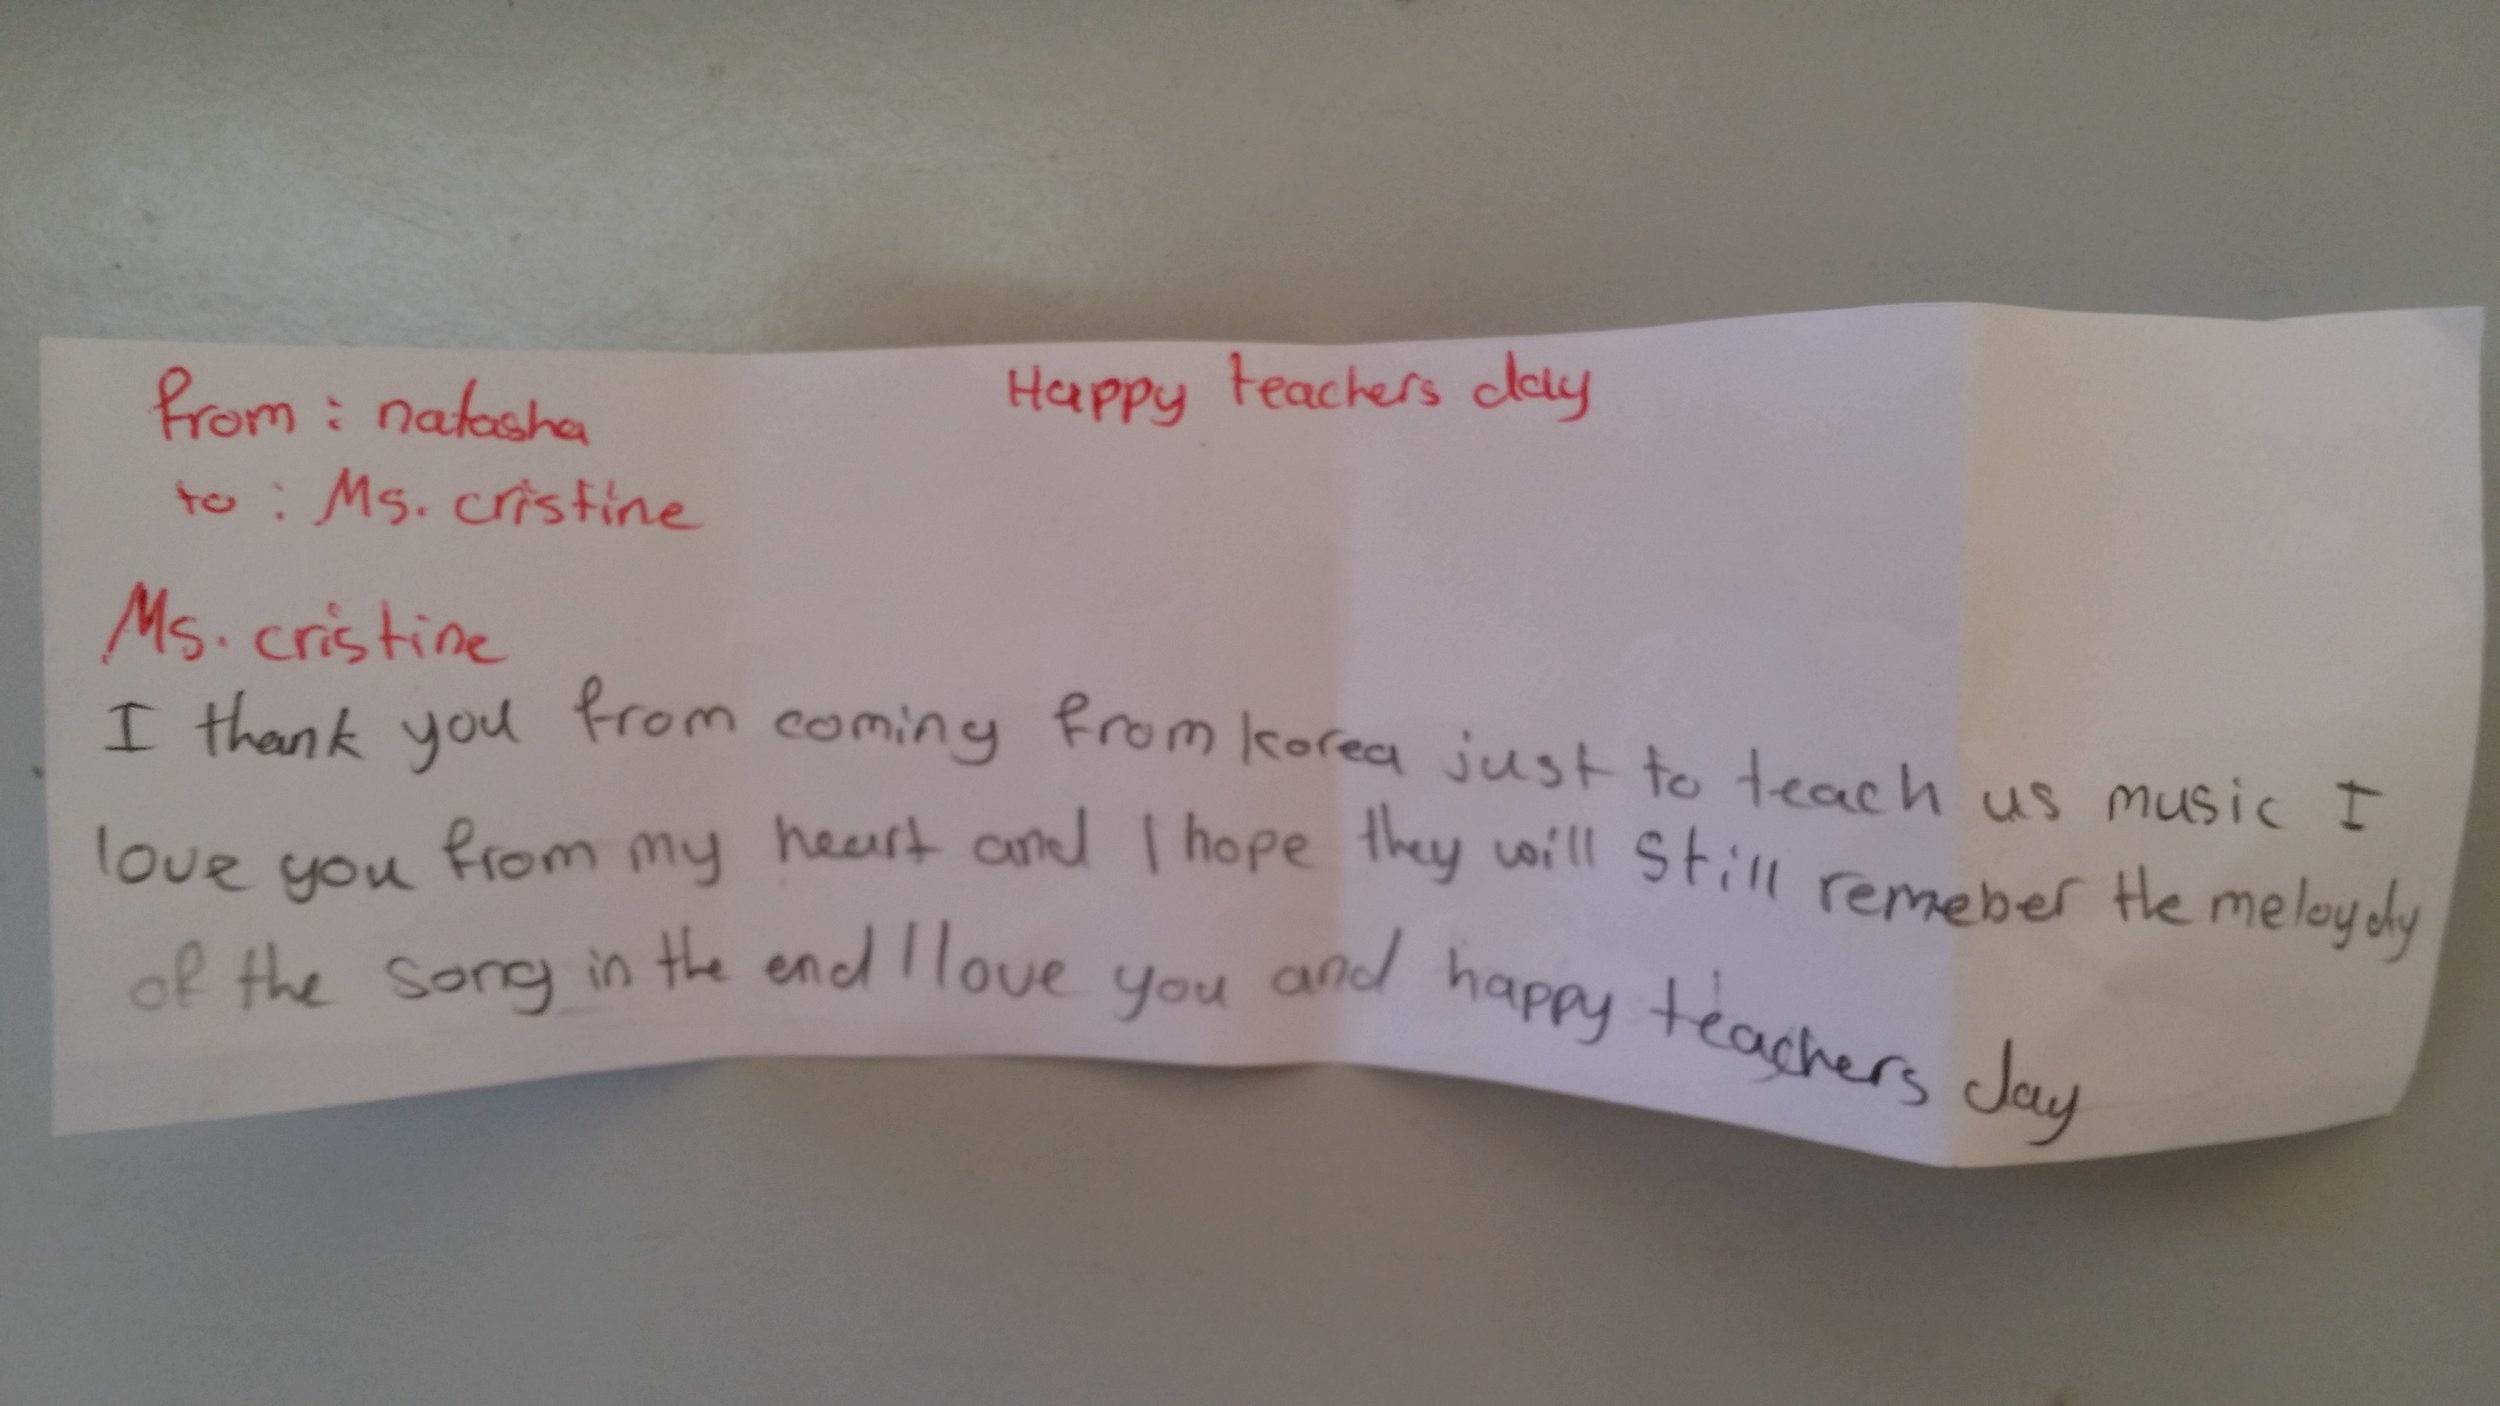 from : natasha
Happy teachers day
to : Ms. cristine
Ms. cristine
I thank you from coming from korea just to teach us music I
love you from my heart and I hope they will still remeber the meloydy
of the song in the end I love you and happy teachers day